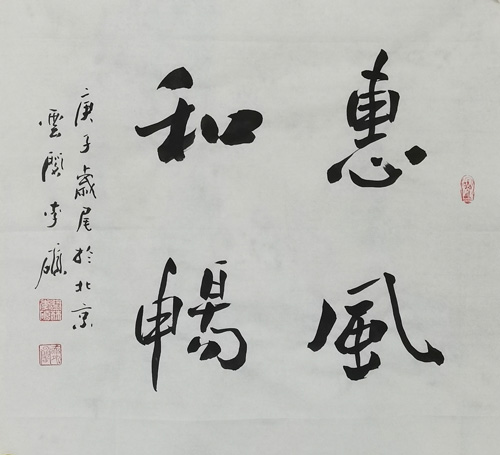 惠風
和暢
庚子歲尾於北京
雲閒李礦